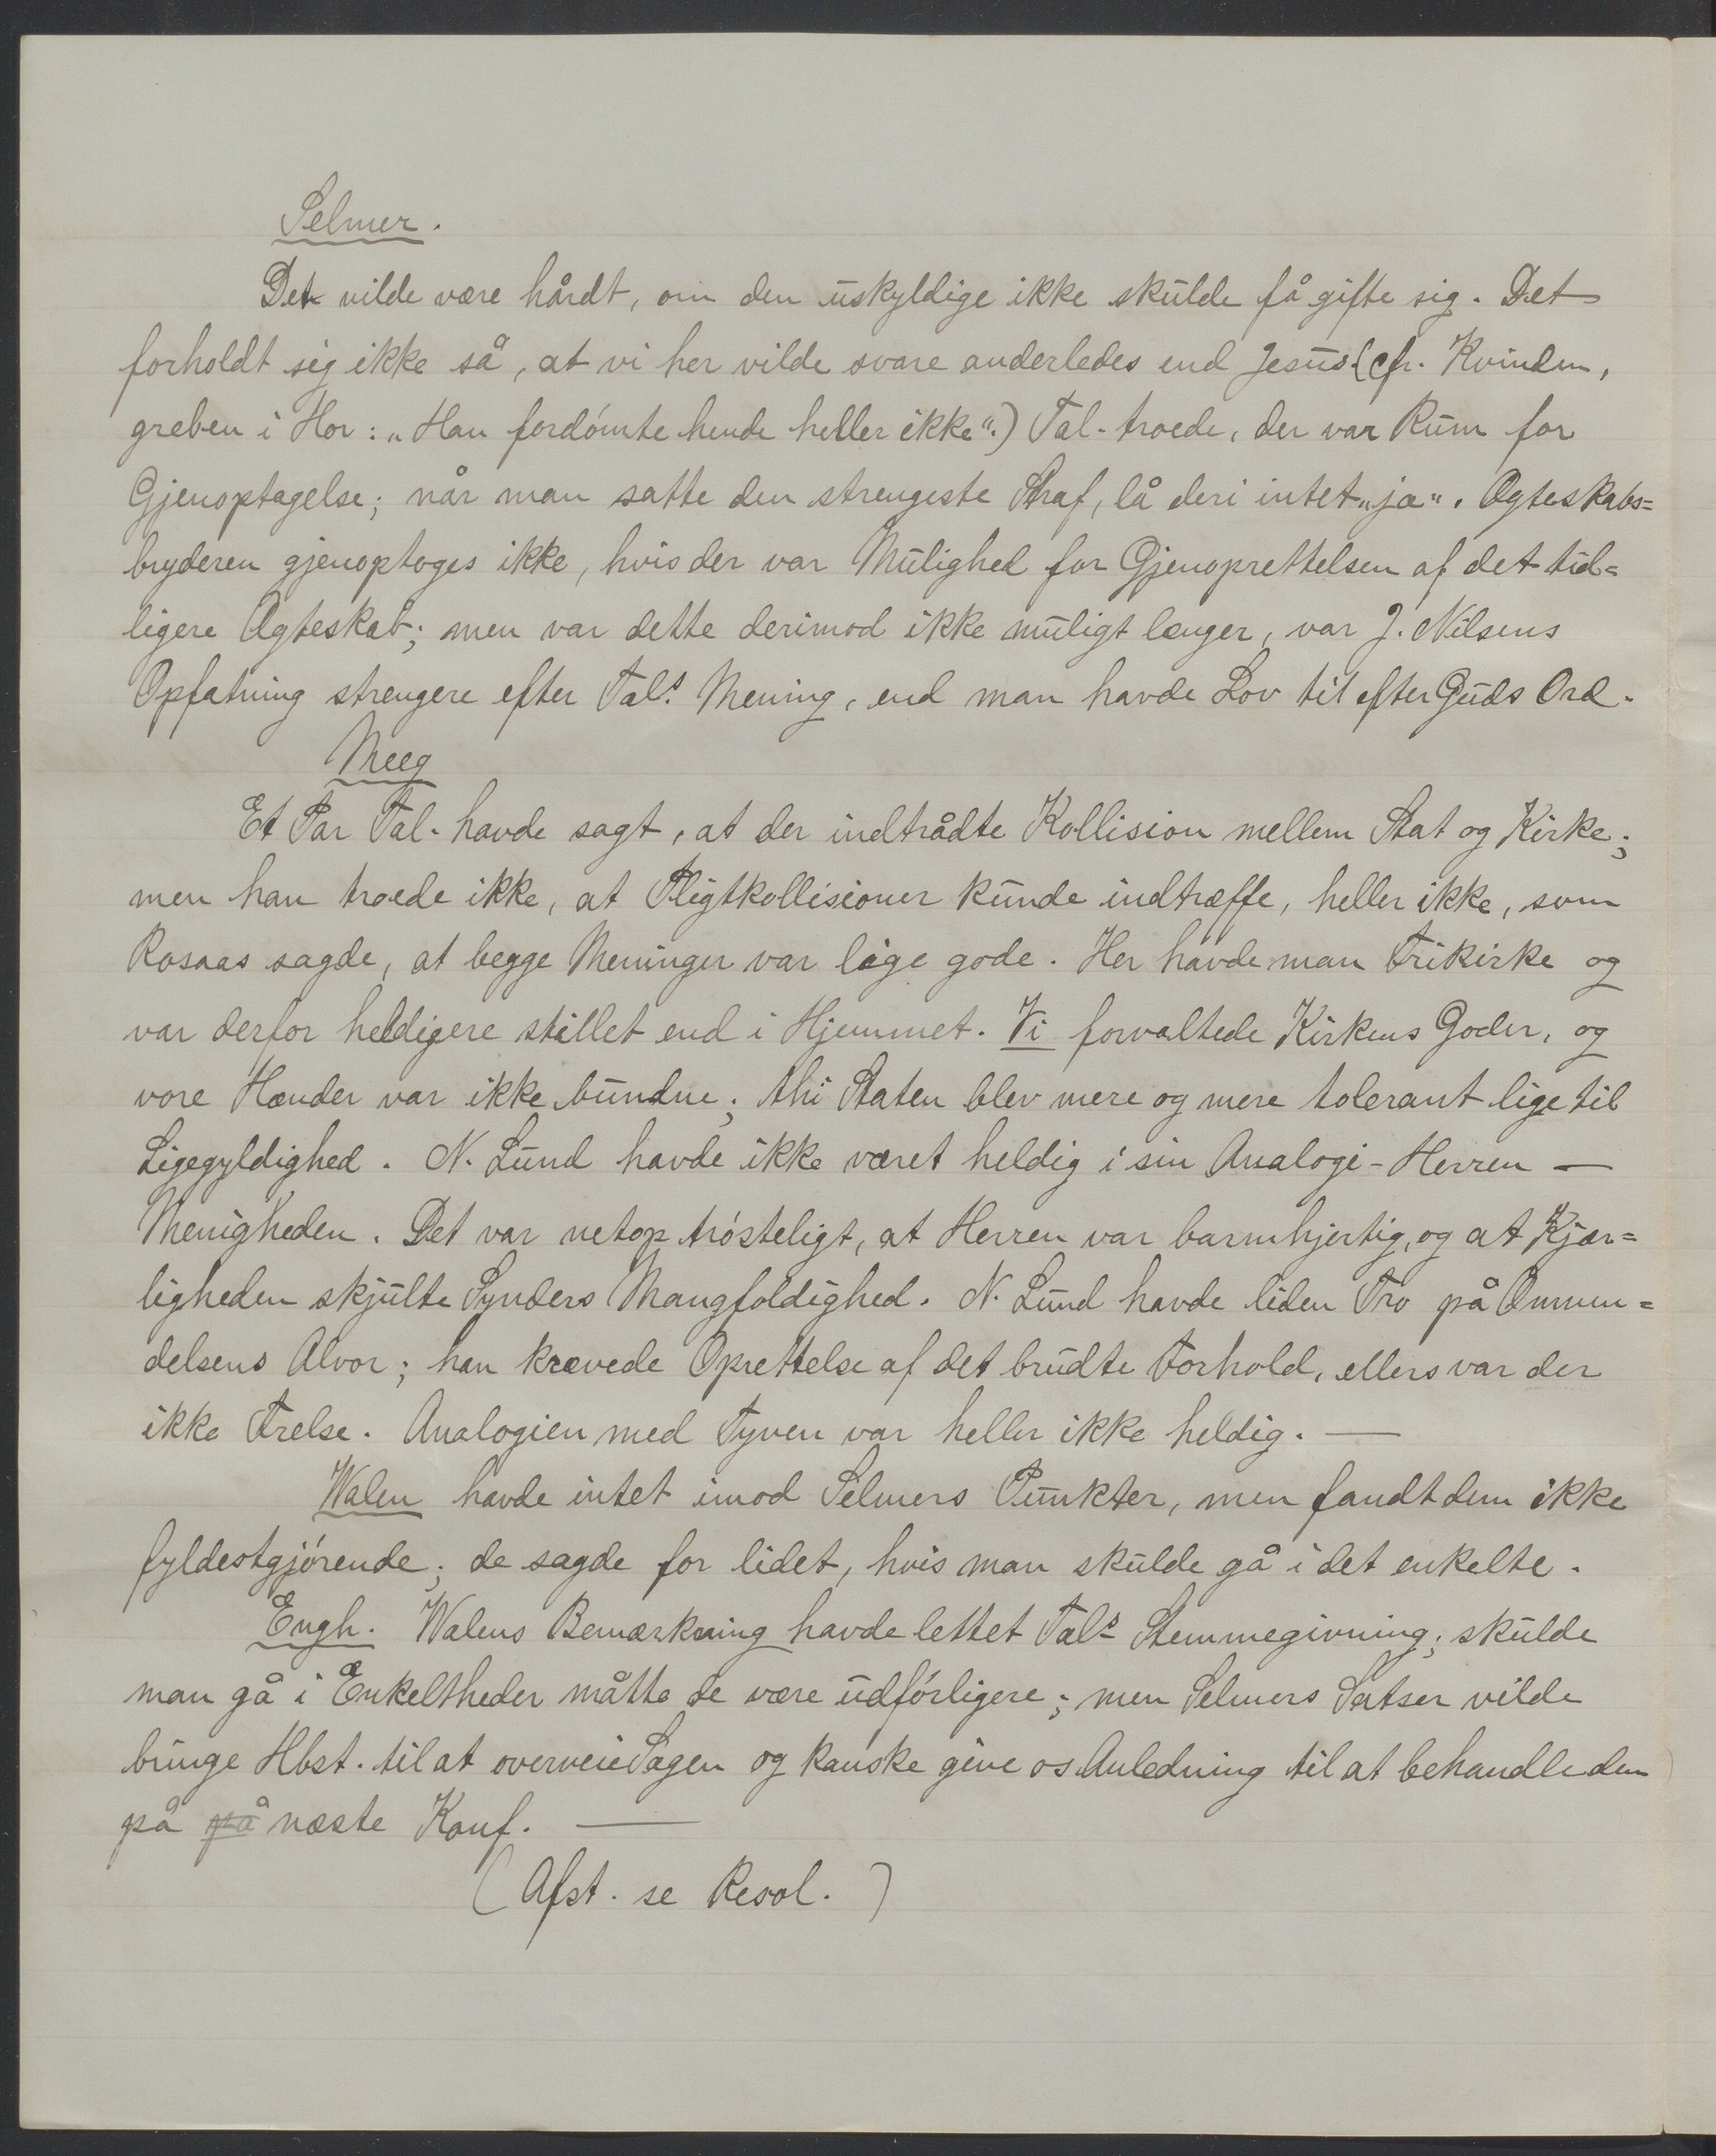 Selmer.
Det vilde være hårdt, om den uskyldige ikke skulde få gifte sig. Det
forholdt sig ikke så, at vi her vilde svare anderledes end Jesus (cfr. Kvinden,
greben i Hor: „Han fordómte hende heller ikke“.) Tal. troede, der var Rum for
Gjenoptagelse; når man satte den strengeste Straf, lå deri intet „ja“. Ægteskabs=
bryderen gjenoptoges ikke, hvis der var Mulighed for Gjenoprettelsen af det tid=
ligere Ægteskab; men var dette derimod ikke muligt længer, var J. Nilsens
Opfatning strengere efter Tals Mening, end man havde Lov til efter Guds Ord.
Meeg
Et Par Tal. havde sagt, at der indtrådte Kollision mellem Stat og Kirke;
men han troede ikke, at Pligtkollisioner kunde indtræffe, heller ikke, som
Rosaas sagde, at begge Meninger var lige gode. Her havde man Frikirke og
var derfor heldigere stillet end i Hjemmet. Vi forvaltede Kirkens Goder, og
vore Hænder var ikke bundne; thi Staten blev mere og mere tolerant lige til
Ligegyldighed. N. Lund havde ikke været heldig i sin Analogi - Herren —
Menigheden. Det var netop trósteligt, at Herren var barmhjertig, og at Kjær=
ligheden skjulte Synders Mangfoldighed. N. Lund havde liden Tro på Omven=
delsens Alvor; han krævede Oprettelse af det brudte Forhold, ellers var der
ikke Frelse. Analogien med Tyven var heller ikke heldig. —
Walen havde intet imod Selmers Punkter, men fandt dem ikke
fyldestgjórende; de sagde for lidet, hvis man skulde gå i det enkelte.
Engh. Walens Bemærkning havde lettet Tals Stemmegivning; skulde
man gå i Enkeltheder måtte de være udfórligere; men Selmers Satser vilde
bringe Hbst. til at overveie Sagen og kanske give os Anledning til at behandle den
på på næste Konf. —
(Afst. se Resol.)